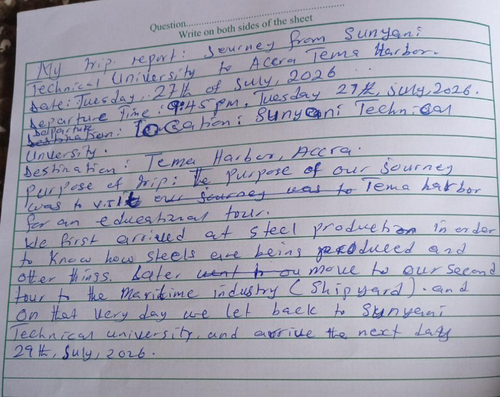 Question..........................................
Write on both sides of the sheet
My trip report: Journey from Sunyani
Technical University to Accra Tema Harbor.
Date: Tuesday, 27th of July, 2026
Departure Time: 9:45 pm, Tuesday 27th, July, 2026.
Departure Location: Sunyani Technical
University.
Destination: Tema Harbor, Accra.
Purpose of trip: The purpose of our journey
was to visit Tema harbor
for an educational tour.
We first arrived at steel production in order
to know how steels are being produced and
other things. Later move to our second
tour to the Maritime industry (Shipyard). and
On that very day we let back to Sunyani
Technical university, and arrive the next day
29th, July, 2026.